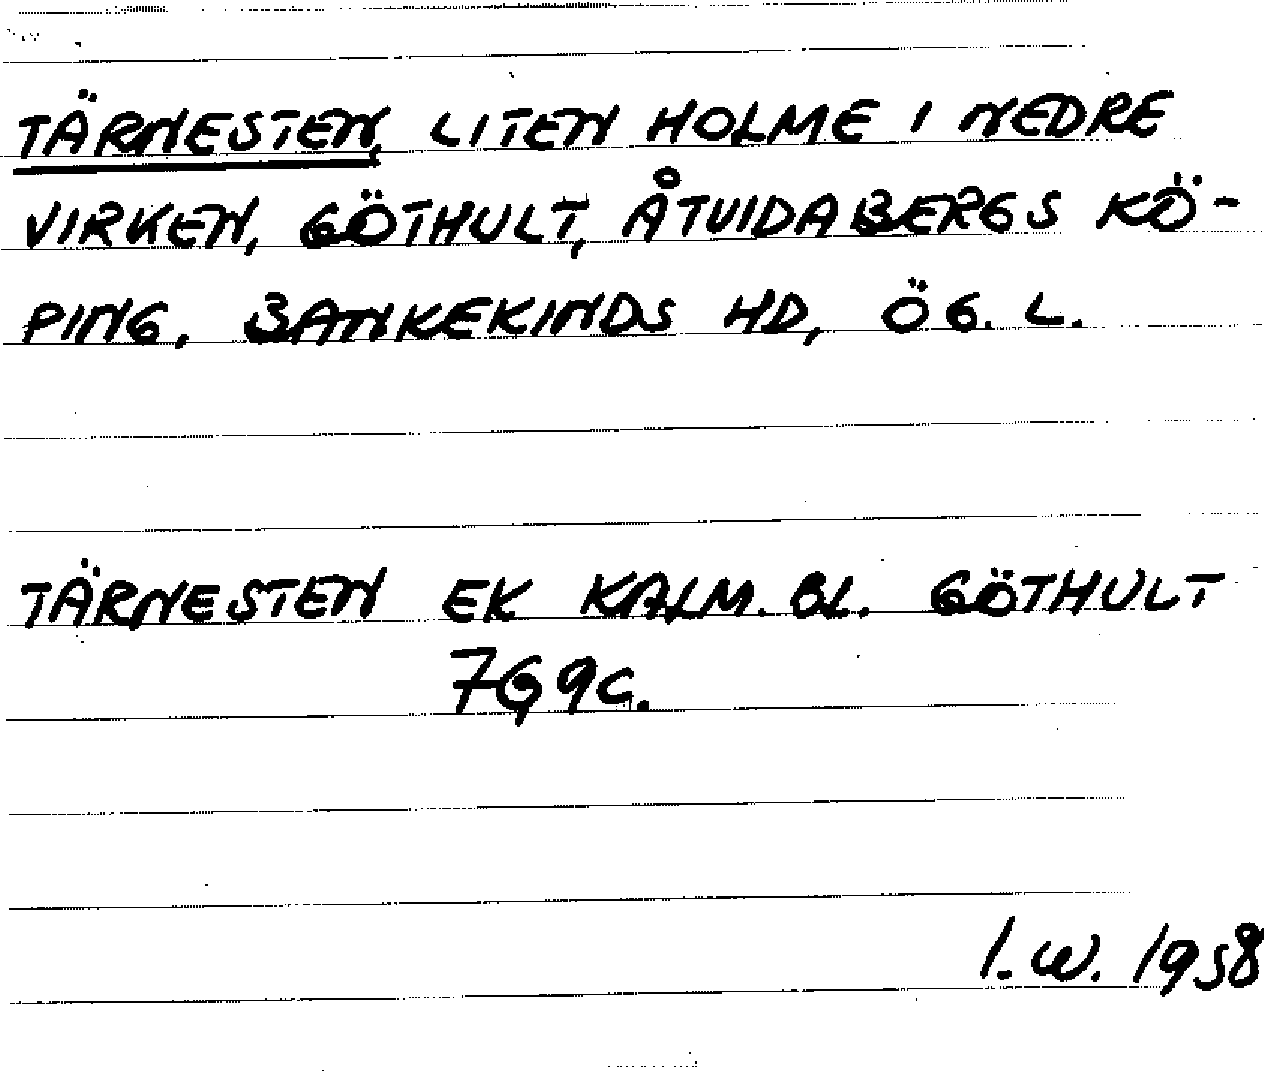 TÄRNESTEN, LITEN HOLME I NEDRE
VIRKEN, GÖTHULT, ÅTVIDABERGS KÖ-
PING, BANKEKINDS HD, ÖG. L.
TÄRNESTEN EK KALM. BL. GÖTHULT
7G9c.
I.W. 1958